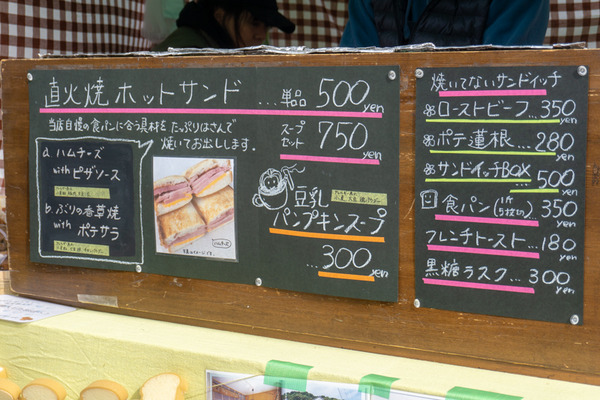 直火焼 ホットサンド
…単品 500yen
当店自慢の食パンに合う具材を たっぷりはさんで
焼いてお出しします。
スープセット 750yen
a. ハムチーズ
with ピザソース
b. ぶりの香草焼
with ポテサラ
豆乳
パンプキンスープ
…300yen
焼いてないサンドイッチ
ローストビーフ…350yen
ポテ蓮根…280yen
サンドイッチBOX…500yen
食パン(1斤5枚切)…350yen
フレンチトースト…180yen
黒糖ラスク…300yen